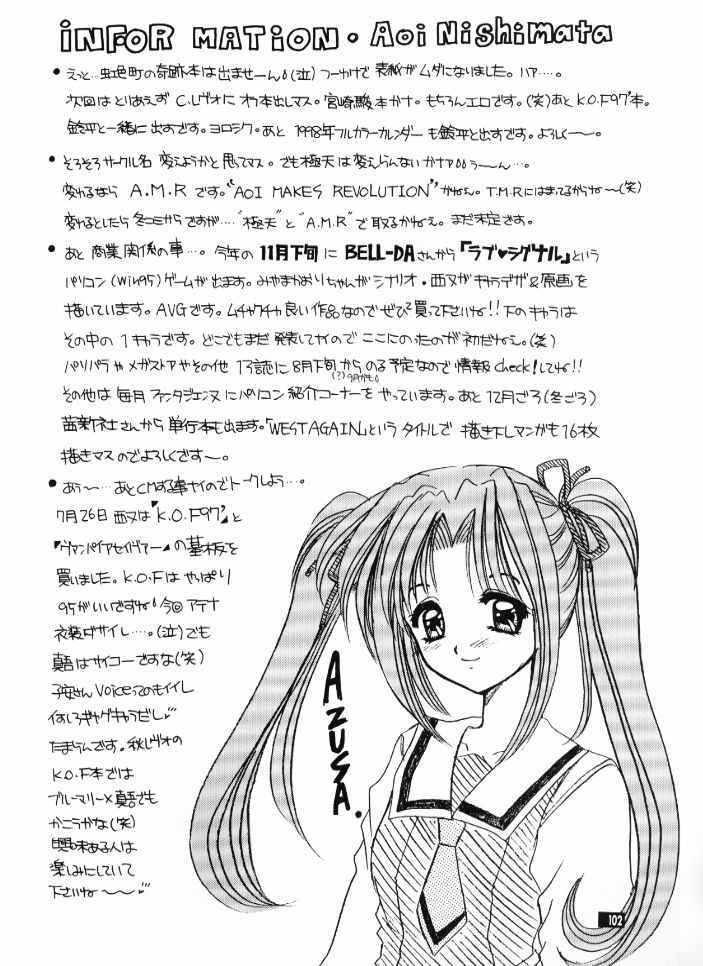 INFORMATION・Aoi Nishimata
・えっと…虹色町の奇跡本は出ませーん!(泣)つーかけで 表紙がムダになりました。ハァ…。
次回はとりあえず C.レヴォに オフ本出しマス。宮崎駿本かナ。もちろんエロです。(笑)あと K.O.F97'本。
鈴平と一緒に出すです。ヨロシク。あと 1998年フルカラーカレンダーも鈴平と出すです。よろしくー〜。
・そろそろサークル名 変えようかと思ってマス。でも極天は変えらんないかナァ。うーん…。
変わるなら A.M.R です。"AOI MAKES REVOLUTION" かねぇ。T.M.Rにはまってるからね〜(笑)
変わるとしたら冬コミからですが…."極天"と"A.M.R"で取るかねぇ。まだ未定さす。
・あと 商業関係の事…。今年の 11月下旬に BELL-DAさんから「ラブ♥シグナル」という
パソコン(Win95)ゲームが出ます。みやまかおりちゃんがシナリオ・西又がキャラデザ&原画を
描いています。AVGです。ムチャクチャ良い作品なのでぜひ買って下さいね!!下のキャラは
その中の1キャラです。どこでもまだ発表してナイのでここにのったのが初だねぇ。(笑)
パソパラやメガストアやその他 13誌に8月下旬からのる予定なので情報 check!してね!!
(?)9月かも。
その他は毎月ファンタジェンヌにパソコン紹介コーナーをやっています。あと12月ごろ(冬ごろ)
茜新社さんから 単行本も出ます。「WEST AGAIN」というタイトルで 描き下しマンガも16枚
描きマスのでよろしくです〜。
・あぅ〜…あとCMする事ナイのでトークしよう…。
7月26日 西又は「K.O.F97'」と
「ヴァンパイアセイヴァー」の基板を
買いました。K.O.Fは やっぱり
95がいいですね!今回 アテナ
衣装ダサイし….(泣)でも
真吾はサイコーですな(笑)
子安さんVoiceってのもイイし
何しろギャグキャラだし
たまらんです。秋レヴォの
K.O.F本では
ブルーマリー×真吾でも
かこうかな(笑)
興味ある人は
楽しみにしていて
下さいね〜〜
AZUSA.
102